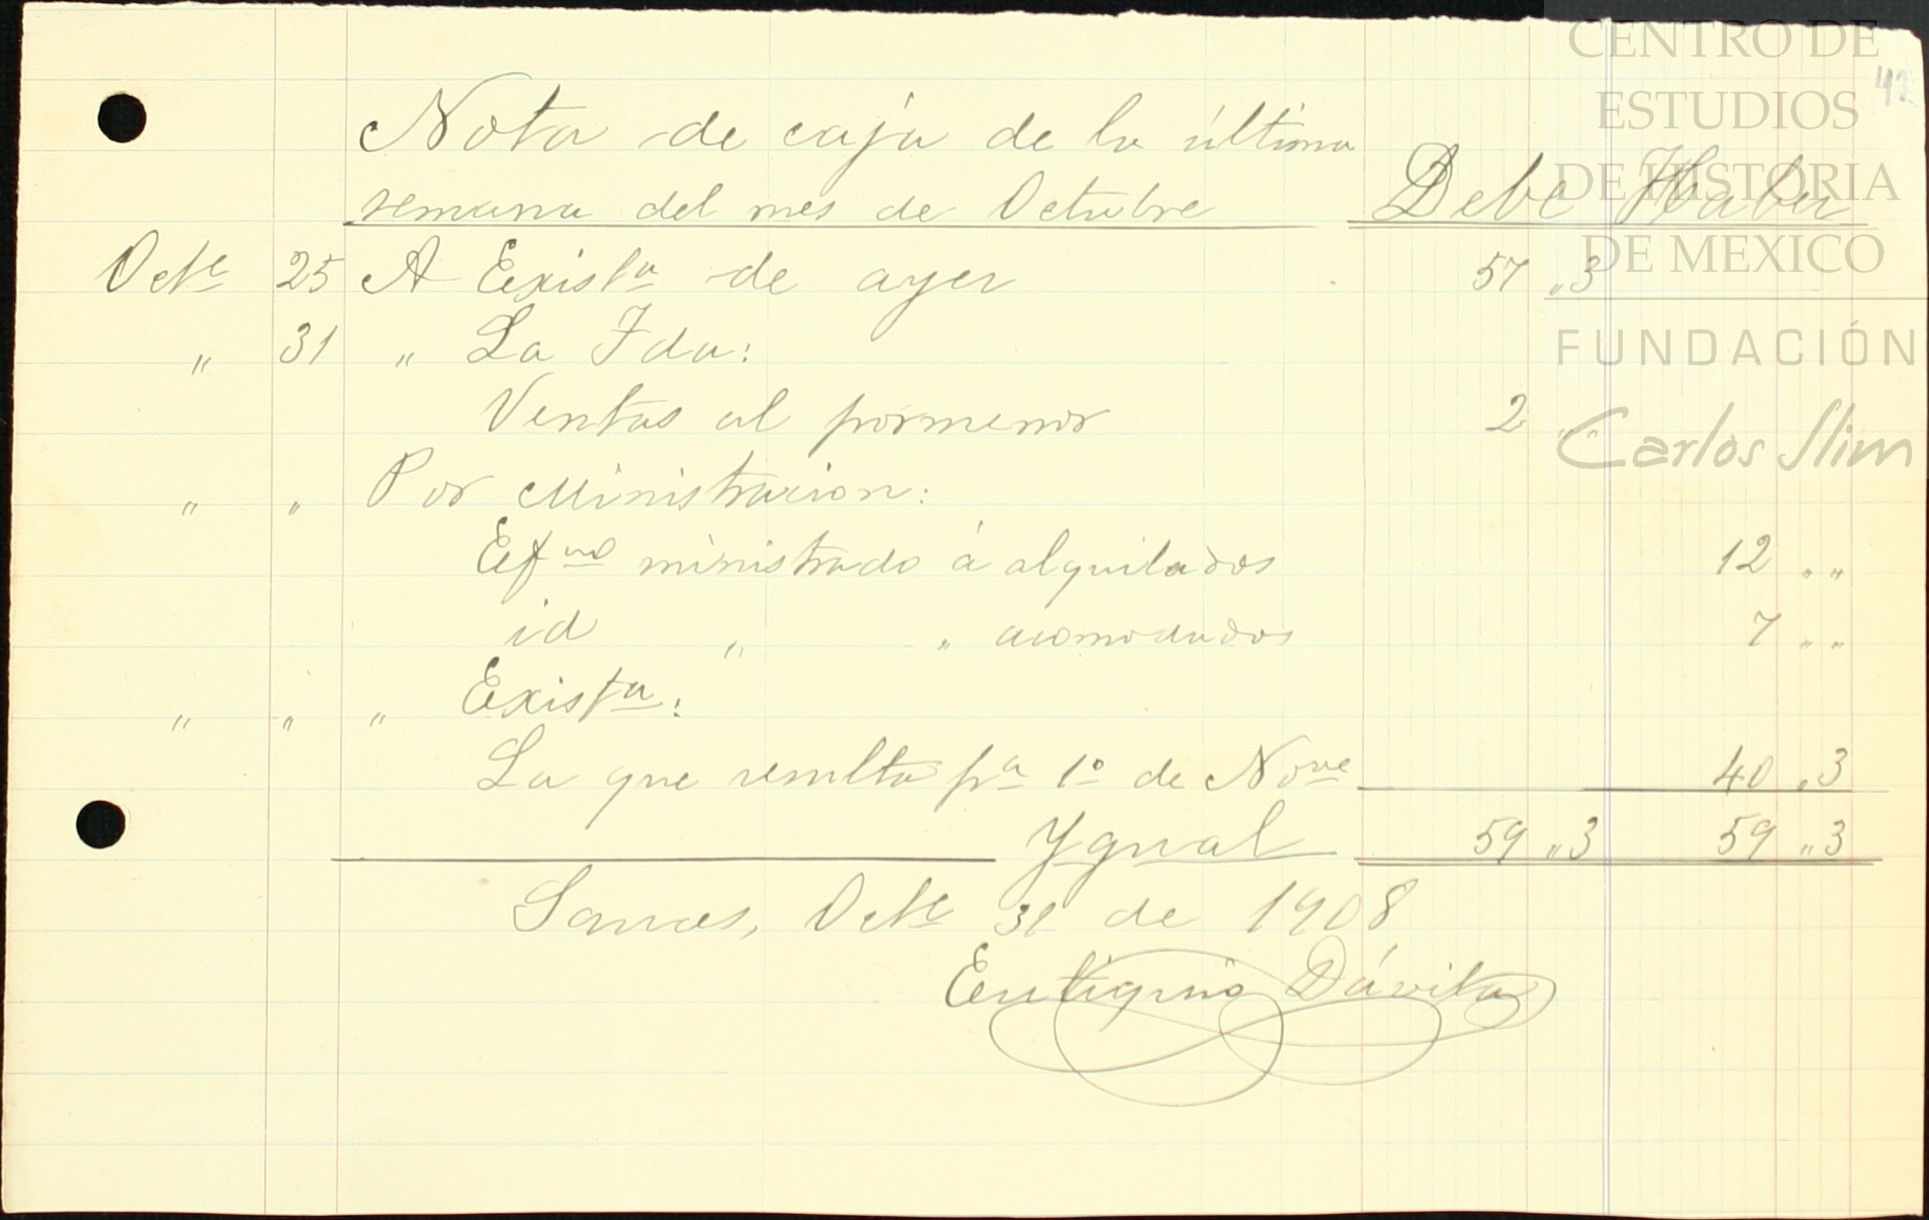 CENTRO DE
ESTUDIOS
DE HISTORIA
DE MEXICO
FUNDACIÓN
Carlos Slim
42
Nota de caja de la última
semana del mes de Octubre Debe Haber
Octe 25 A Exista de ayer 57 „3
„ 31 „ La Fda:
Ventas al pormenor 2 „„
„ „ Por Ministracion:
Efvo ministrado á alquilados 12 „„
id „ „ acomodados 7 „„
„ „ „ Exista:
La que resulta pa 1º de Nove 40 „3
Ygual 59 „3 59 „3
Octe 31 de 1908
Eutiquio Dávila